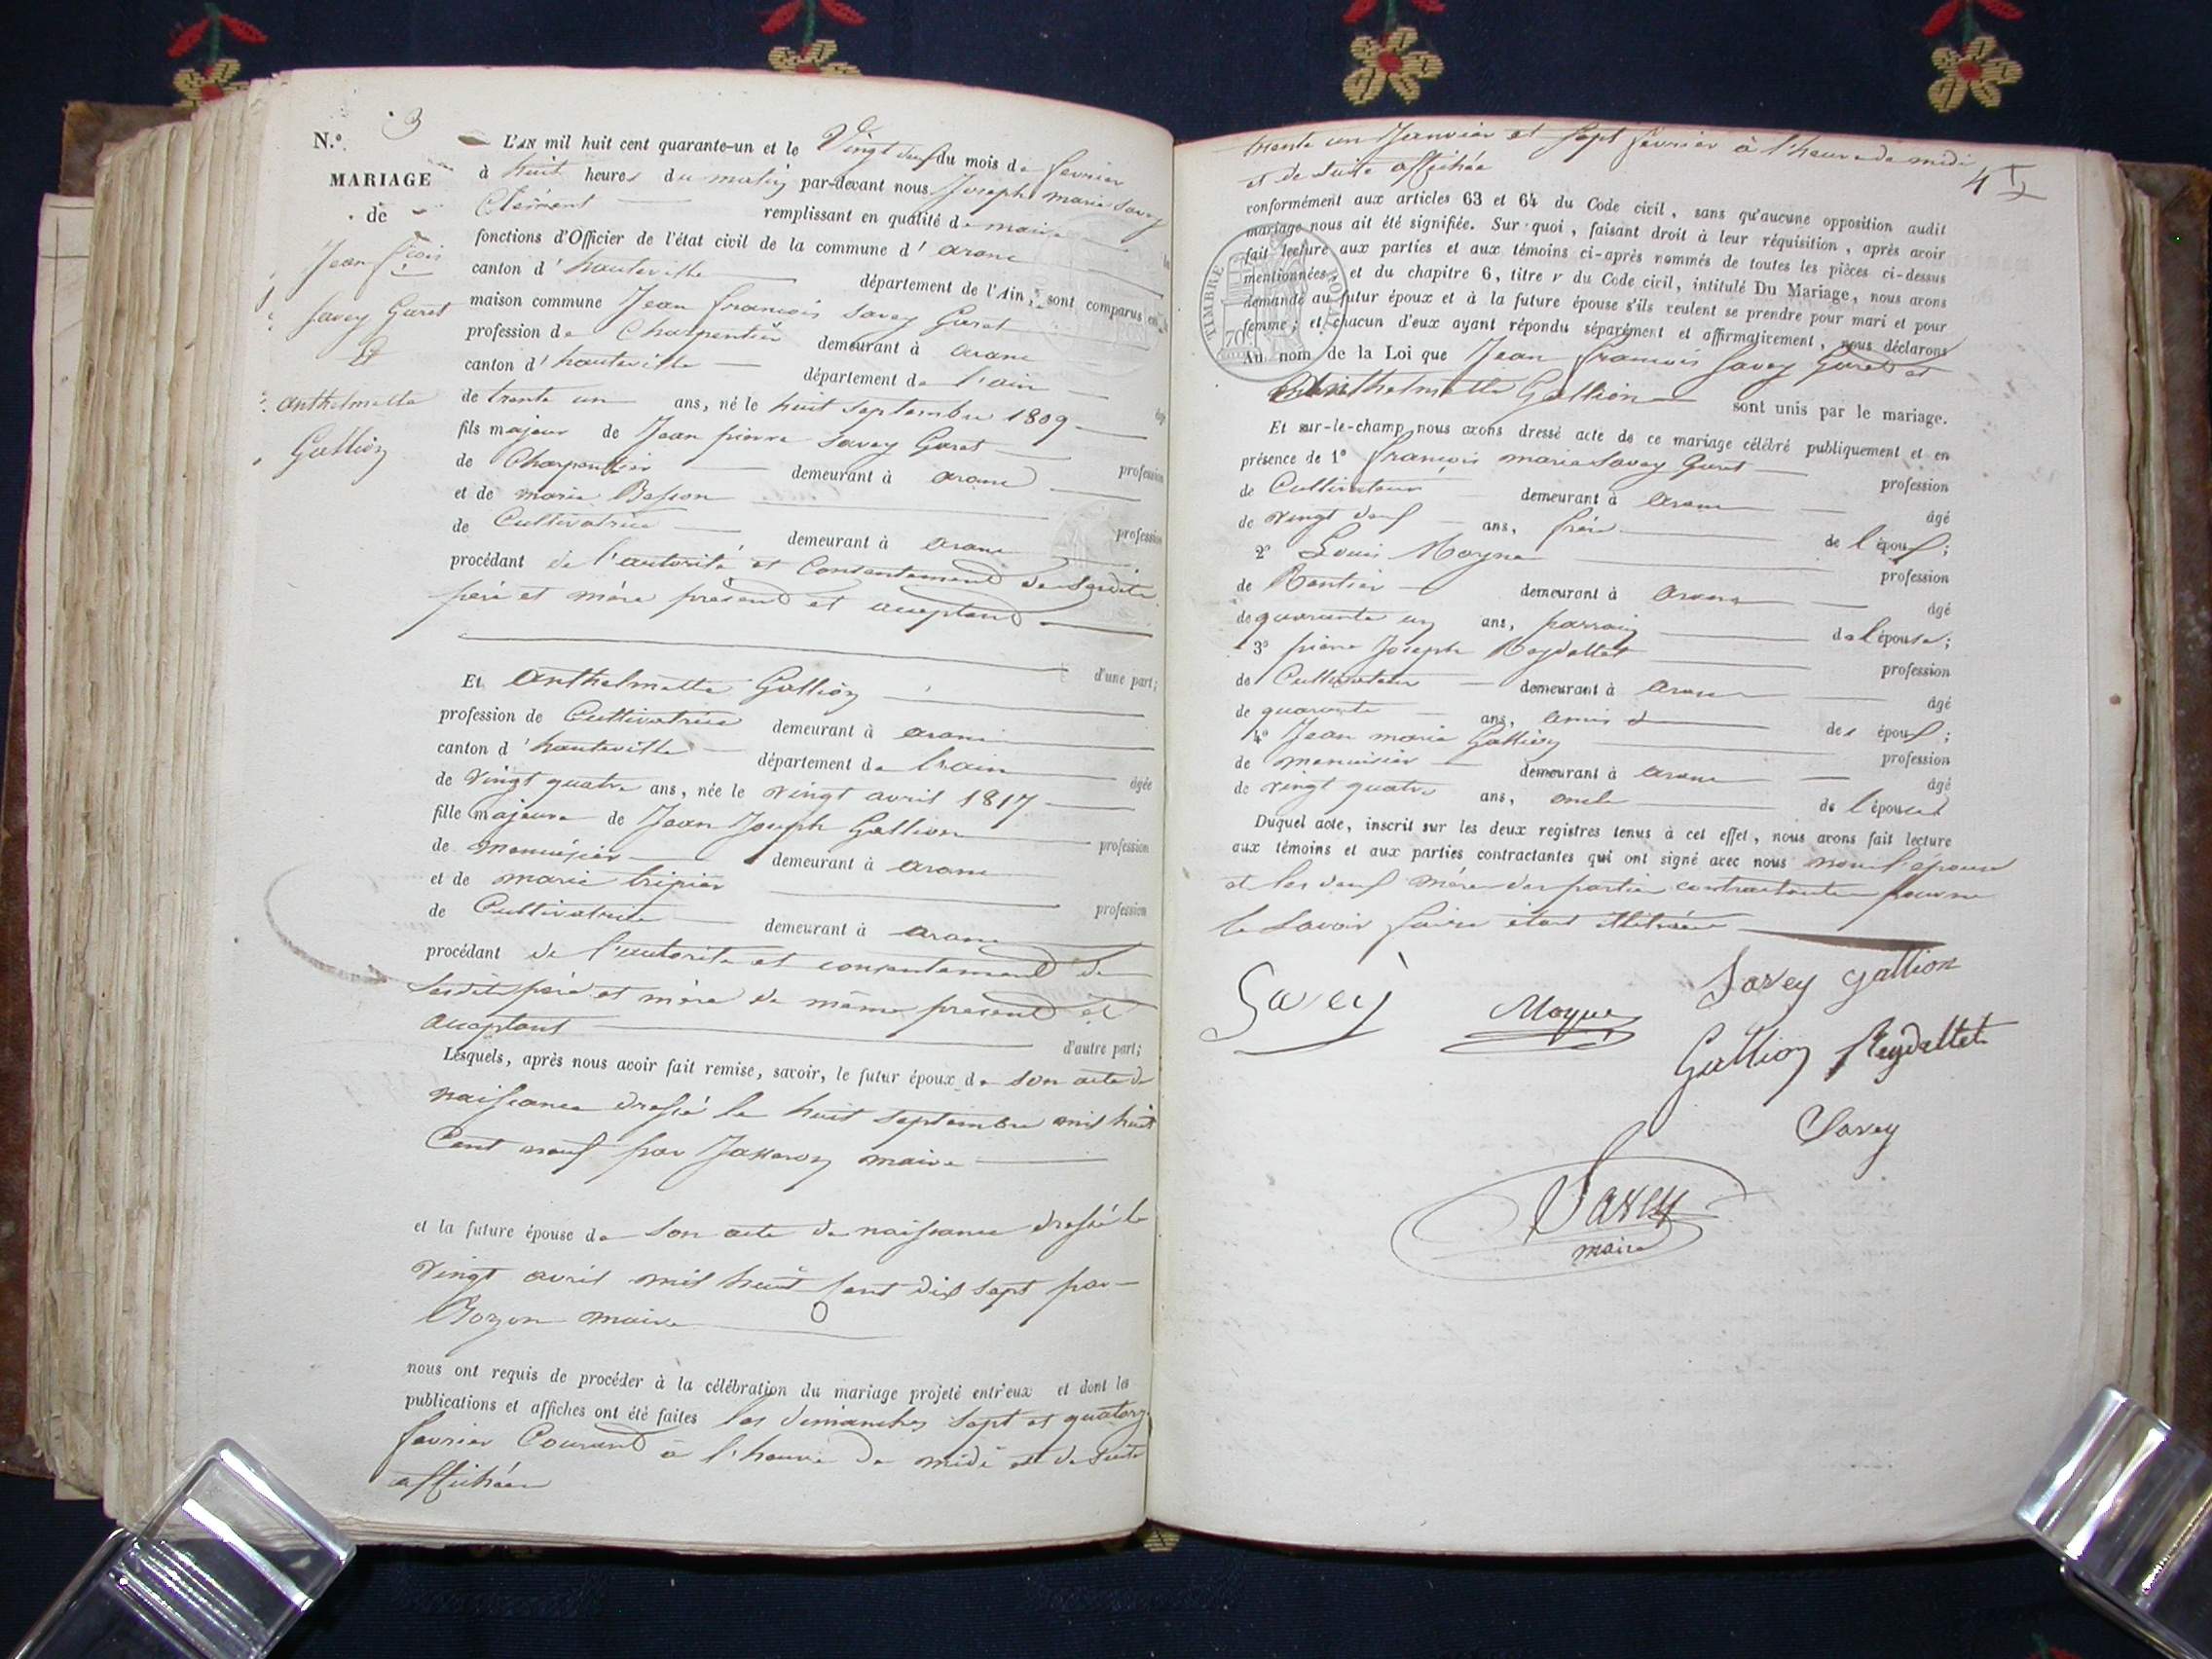 N.° 3
MARIAGE
de
Jean fcois
Savey Guret
Et
anthelmette
Gallion
L'AN mil huit cent quarante-un et le Vingt deux du mois de fevrier
à huit heures du matin par-devant nous Joseph marie Savey
Clément remplissant en qualité de maire les
fonctions d'Officier de l'état civil de la commune d'arane
canton d'hauteville département de l'Ain, sont comparus en la
maison commune Jean francois Savey Guret
profession de Charpentier demeurant à arane
canton d'hauteville département de l'ain âgé
de trente un ans, né le huit septembre 1809
fils majeur de Jean pierre Savey Guret profession
de Charpentier demeurant à arane
et de marie Besson profession
de Cultivatrice demeurant à arane
procédant de l'autorité et Consentement de Sesdits
père et mère présend et acceptand
d'une part;
Et anthelmette Gallion
profession de Cultivatrice demeurant à arane
canton d'hauteville département de l'ain âgée
de vingt quatre ans, née le vingt avril 1817
fille majeure de Jean Joseph Gallion profession
de menuisier demeurant à arane
et de marie tripier profession
de Cultivatrice demeurant à arane
procédant de l'autorité et consentement de
Sesdits père et mère de même présend et
acceptant d'autre part;
Lesquels, après nous avoir fait remise, savoir, le futur époux de son acte de
naissance dressé le huit septembre mil huit
Cent neuf par maire
et la future épouse de son acte de naissance dressé le
vingt avril mil huit Cent dix sept par
Bozon maire
nous ont requis de procéder à la célébration du mariage projeté entr'eux et dont les
publications et affiches ont été faites les dimanches sept et quatorze
fevrier Courand à l'heure de midi et de suite
affichées
trente un Janvier et Sept fevrier à l'heure de midi
et de suite affichée
4
conformément aux articles 63 et 64 du Code civil, sans qu'aucune opposition audit
mariage nous ait été signifiée. Sur quoi, faisant droit à leur réquisition, après avoir
fait lecture aux parties et aux témoins ci-après nommés de toutes les pièces ci-dessus
mentionnées, et du chapitre 6, titre v du Code civil, intitulé Du Mariage, nous avons
demandé au futur époux et à la future épouse s'ils veulent se prendre pour mari et pour
femme; et chacun d'eux ayant répondu séparément et affirmativement, nous déclarons
TIMBRE ROYAL 70
Au nom de la Loi que Jean francois Savey Guret et
Anthelmette Gallion sont unis par le mariage.
Et sur-le-champ nous avons dressé acte de ce mariage célébré publiquement et en
présence de 1° françois marie Savey Guret profession
de Cultivateur demeurant à arane âgé
de vingt deux ans, frère de l'époux;
2° Louis Moyne profession
de Rentier demeurant à arane âgé
de quarante un ans, parrain de l'épouse;
3° pierre Joseph Reydellet profession
de Cultivateur demeurant à arane âgé
de quarante ans, amis des époux;
4° Jean marie Gallion profession
de menuisier demeurant à arane âgé
de vingt quatre ans, oncle de l'épouse
Duquel acte, inscrit sur les deux registres tenus à cet effet, nous avons fait lecture
aux témoins et aux parties contractantes qui ont signé avec nous non l'épouse
et les deux mères des partie contractante pour ne
le Savoir faire étant illitérée
Savey Moyne Savey gallion
Gallion Reydellet
Savey
Savey
maire